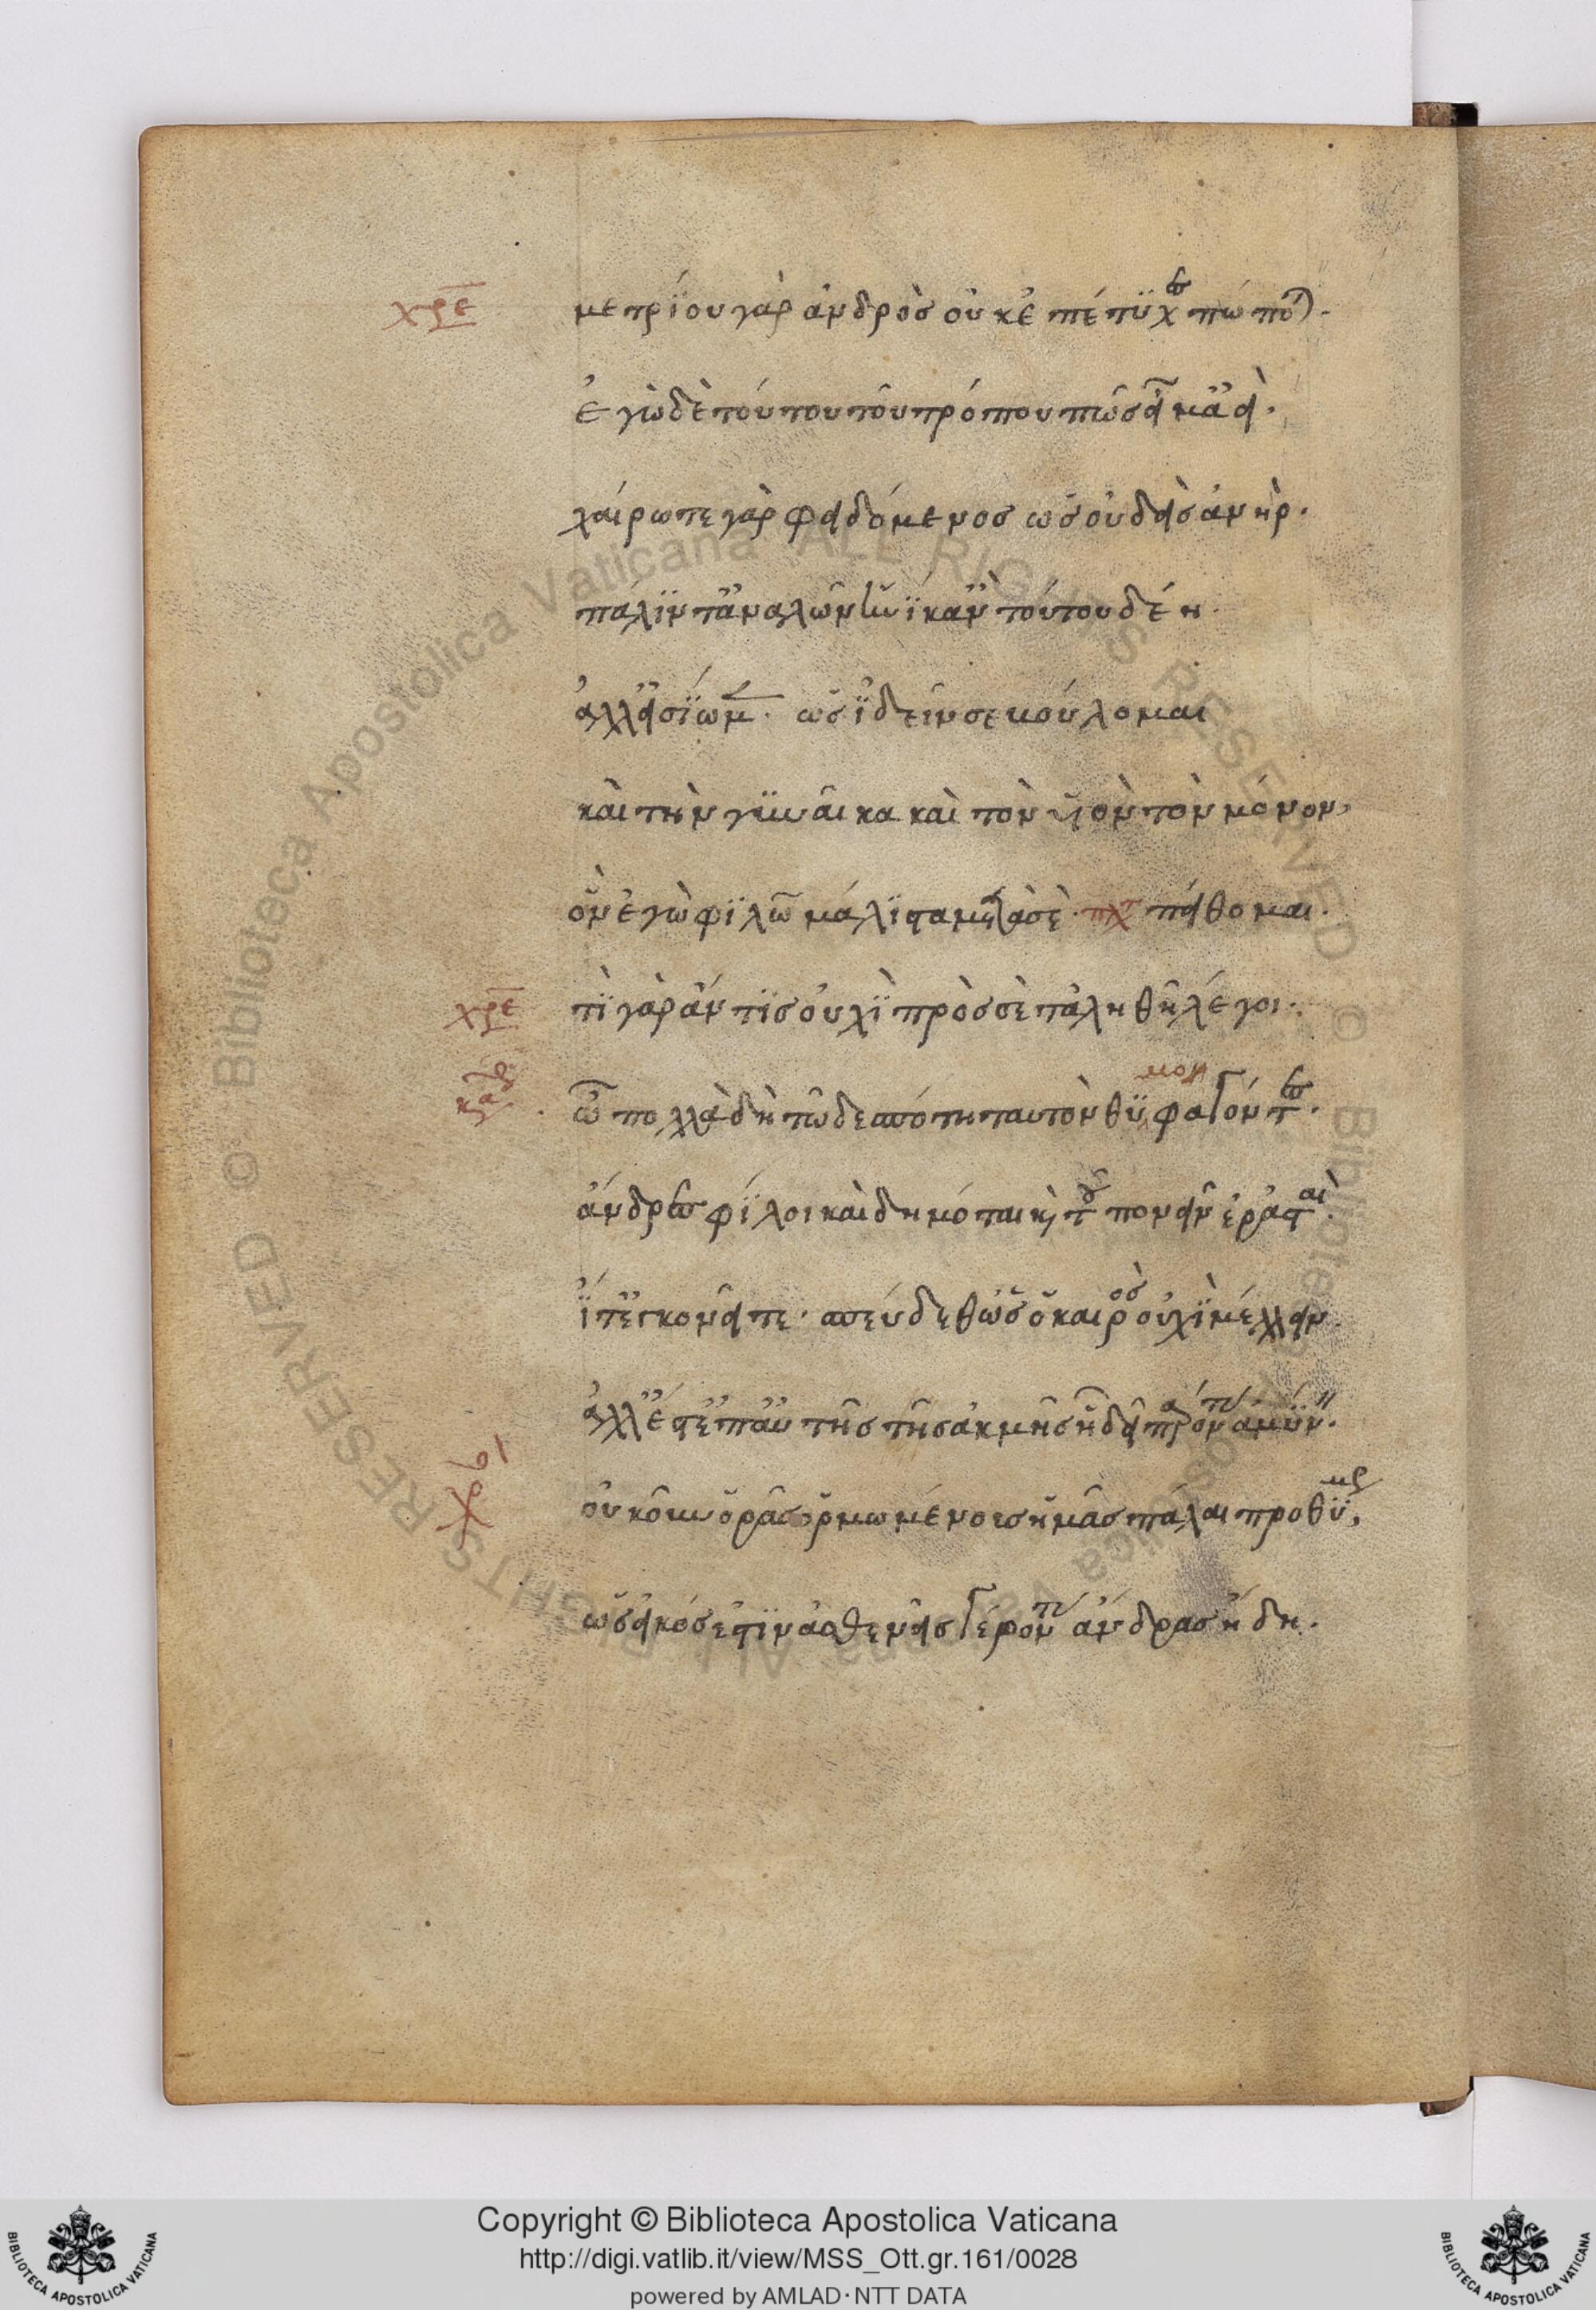 χρε μετρίου γὰρ ἀνδρὸς οὐκ ἐπέτυχες πώποτε.
ἐγὼ δὲ τούτου τοῦ τρόπου πῶς εἰμ᾽ ἀεί.
χαίρω τε γὰρ φειδόμενος ὡς οὐδεὶς ἀνὴρ.
πάλιν τ᾽ ἀναλῶν ἡνίκ᾽ ἂν τούτου δέη.
ἀλλ᾽ εἰσίωμεν. ὡς ἰδεῖν σε βούλομαι
καὶ τὴν γυναῖκα καὶ τὸν υἱὸν τὸν μόνον,
ὃν ἐγὼ φιλῶ μάλιστα μετὰ σὲ. πείθομαι.
χρε τὶ γὰρ ἄν τις οὐχὶ πρὸς σὲ τἀληθῆ λέγοι.
καρ ὦ πολλὰ δὴ τῶ δεσπότη ταυτὸν θύμον φαγόντες.
ἄνδρες φίλοι καὶ δημόται καὶ τοῦ πονεῖν ἐρασταὶ.
ἴτ᾽ ἐγκονεῖτε. σπεύδεθ᾽ ὡς ὁ καιρὸς οὐχὶ μέλλειν.
ἀλλ᾽ ἔστ᾽ ἐπ᾽ αὐτῆς τῆς ἀκμῆς ἧ δεῖ παρόντ᾽ ἀμύνειν.
χορ οὔκουν ὁρᾶς ὁρμωμένους ἡμᾶς πάλαι προθύμως,
ὡς εἰκός ἐστιν ἀσθενεῖς γέροντας ἄνδρας ἤδη.
Copyright © Biblioteca Apostolica Vaticana
http://digi.vatlib.it/view/MSS_Ott.gr.161/0028
powered by AMLAD·NTT DATA